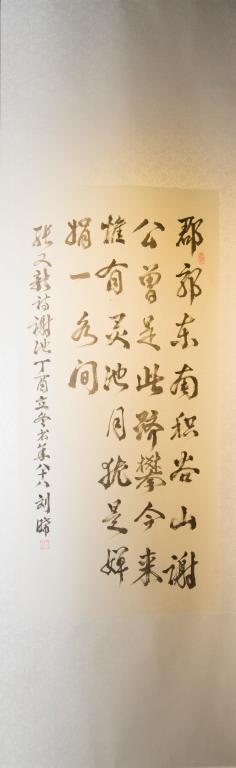 郡郭东南积谷山谢
公曾是此跻攀今来
惟有灵池月犹是婵
娟一水间
张又新诗谢池丁酉立冬书年八十八刘